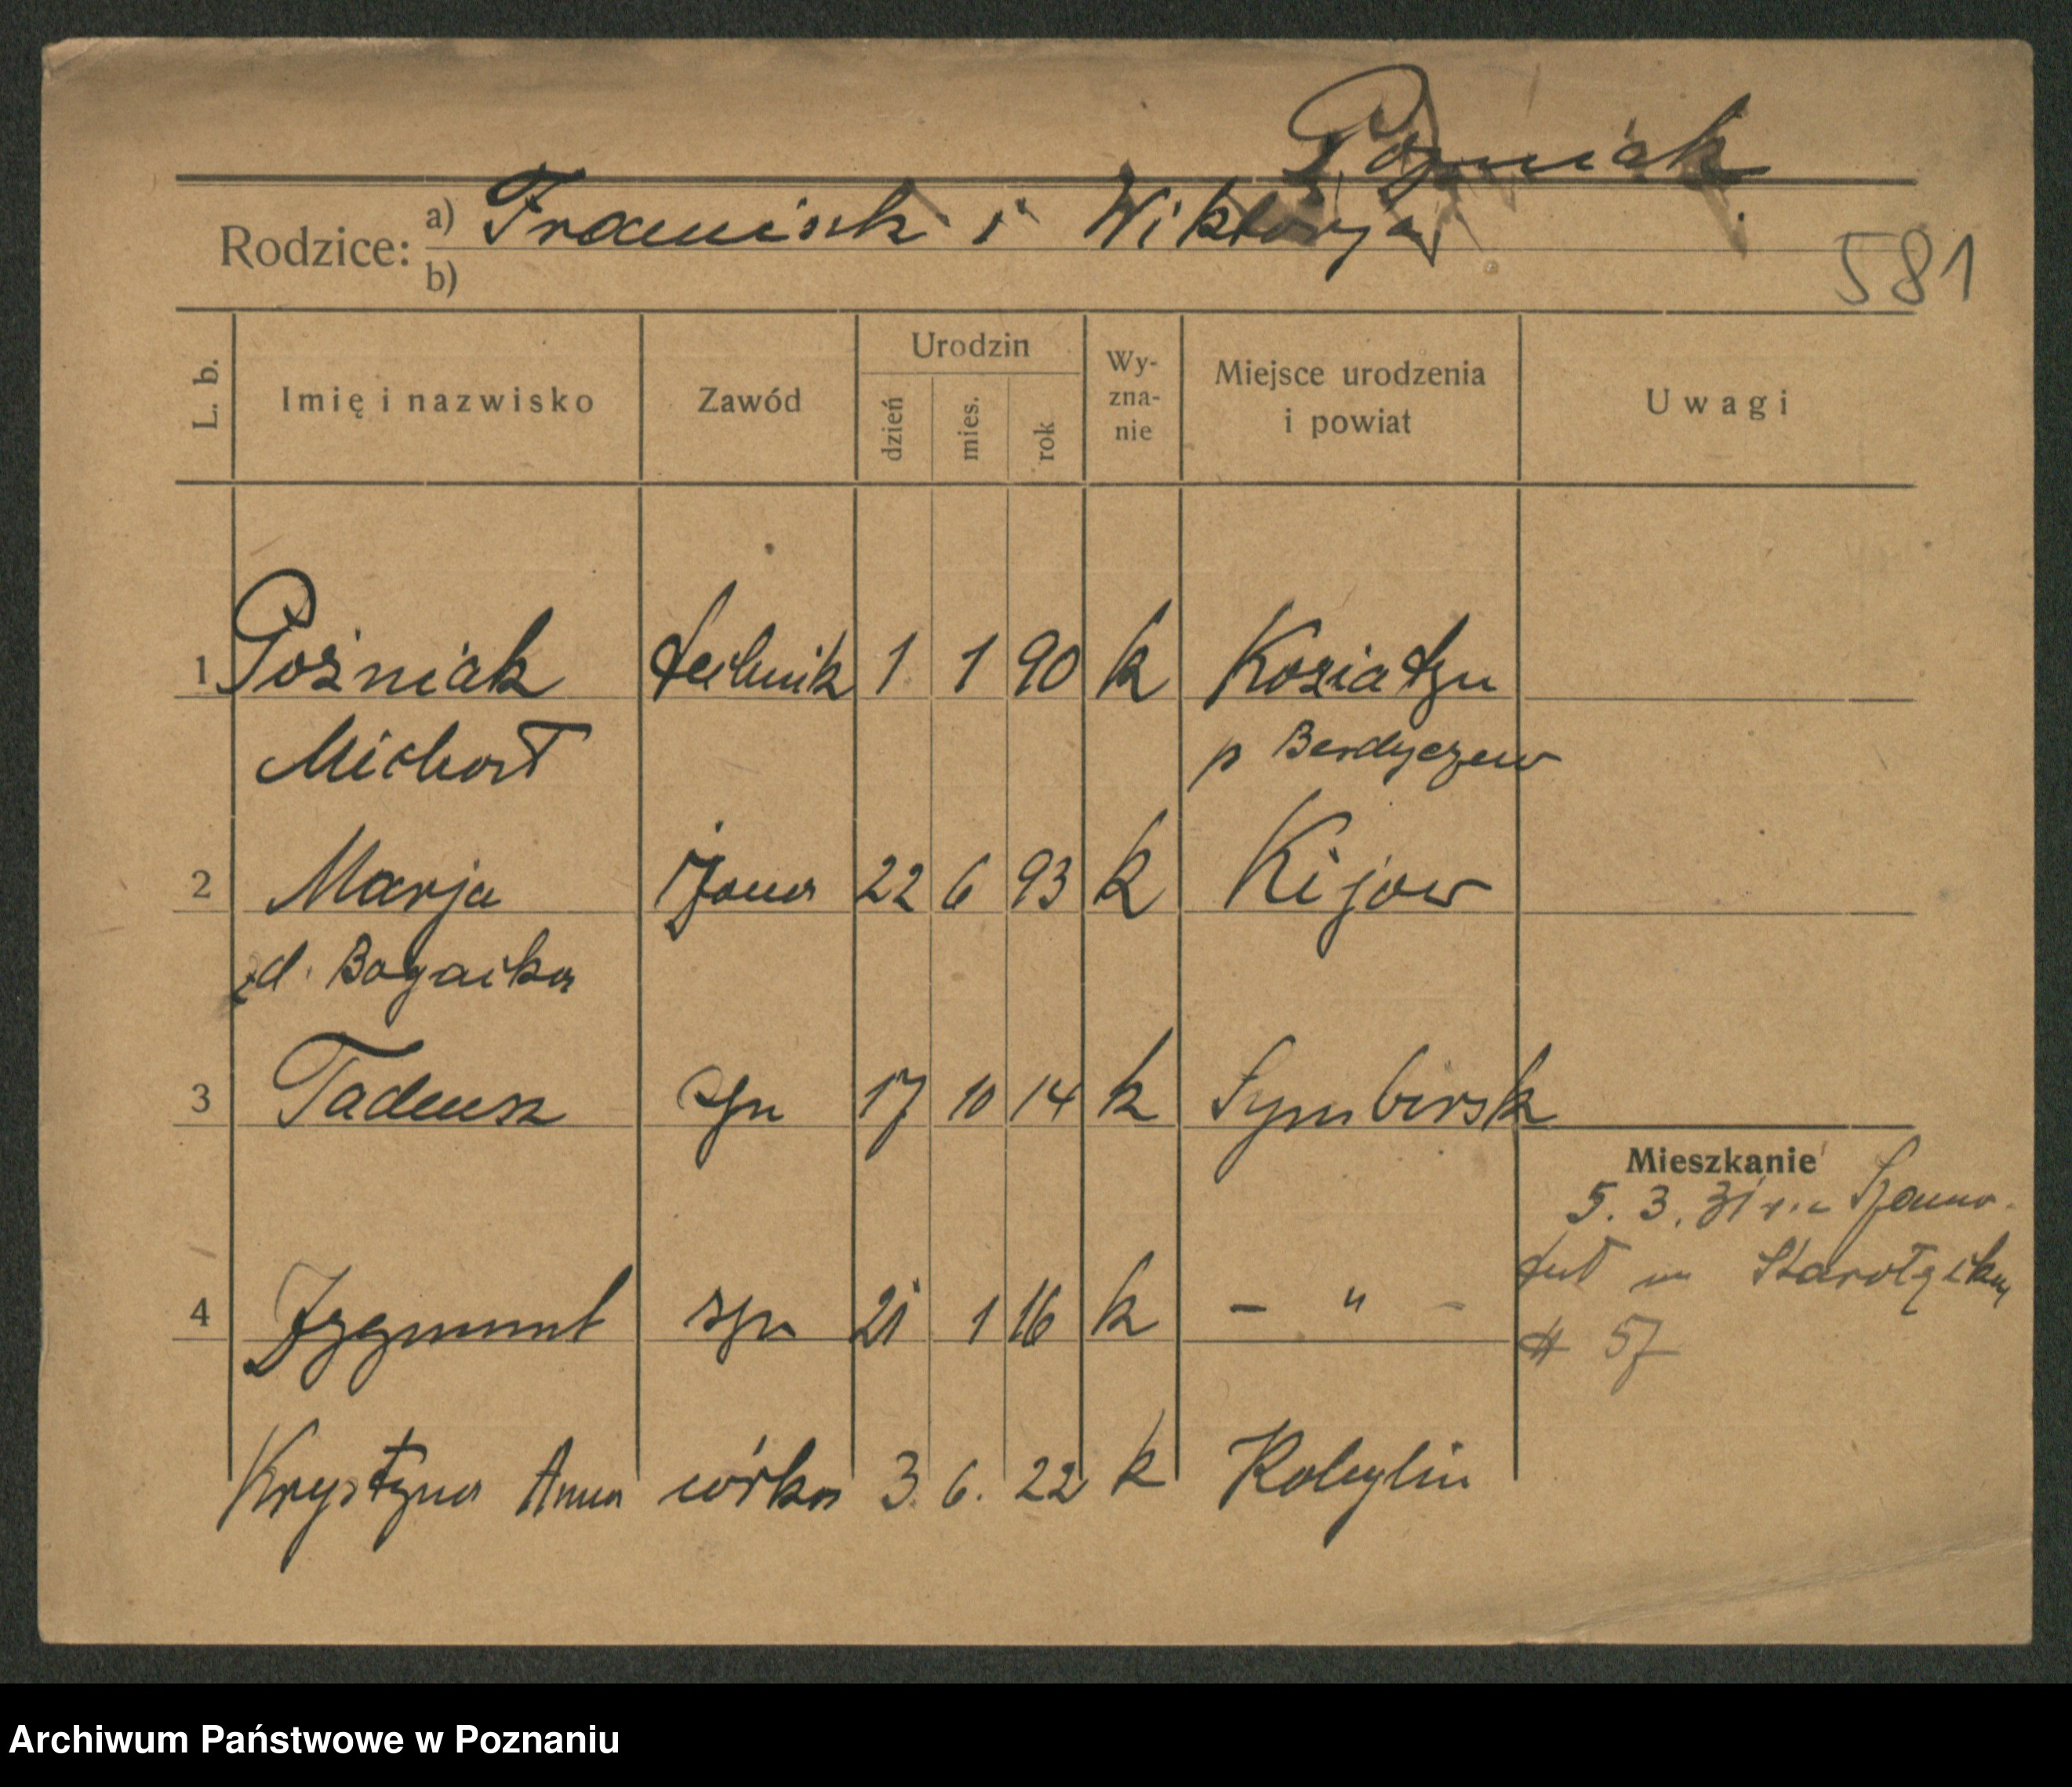 Poźniak
Rodzice: a) Franciszk i Wiktorja
b)
581
L. b. Imię i nazwisko Zawód Urodzin dzień mies. rok Wy-zna-nie Miejsce urodzenia i powiat Uwagi
1 Poźniak technik 1 1 90 k Koziatyn
Michał p Berdyczew
2 Marja żona 22 6 93 k Kijow
zd. Bogaika
3 Tadeusz syn 17 10 14 k Symbirsk
Mieszkanie
5. 3. 31
4 Zygmunt syn 21 1 16 k - " -
57
Krystyna Anna córka 3. 6. 22 k Kobylin
Archiwum Państwowe w Poznaniu